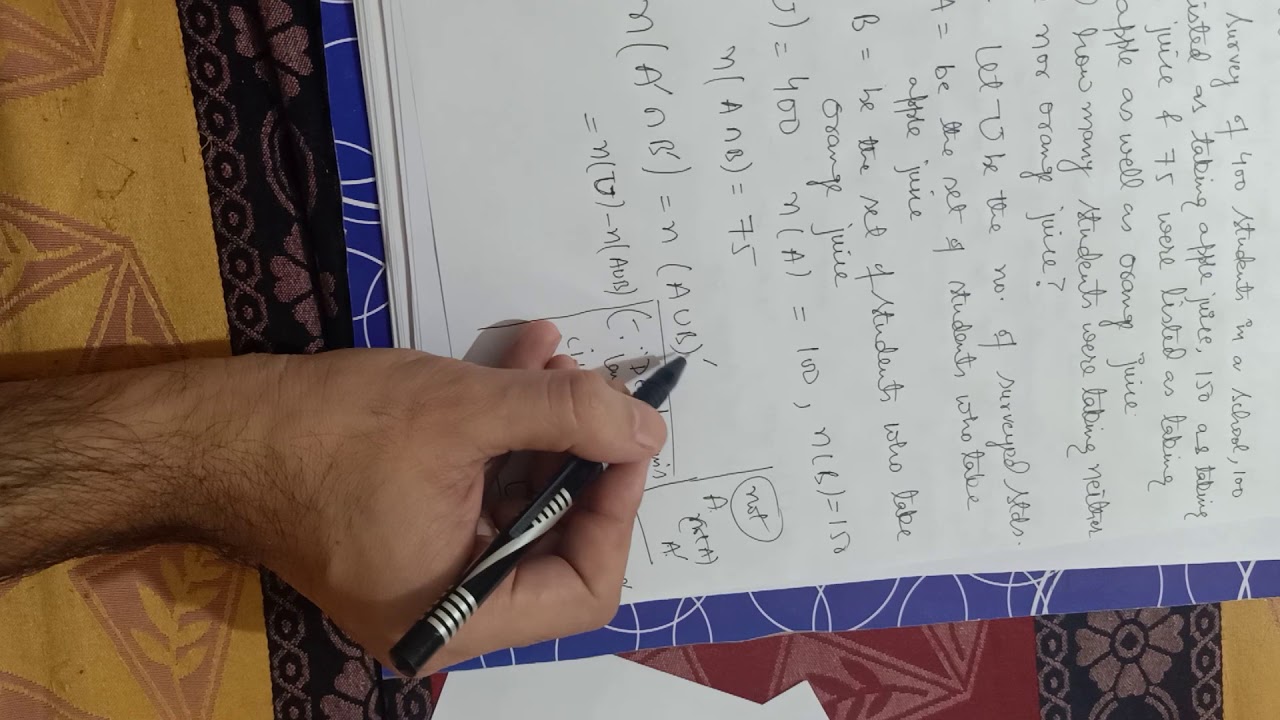 Survey of 400 students in a school, 100
listed as taking apple juice, 150 as taking
juice & 75 were listed as taking
apple as well as orange juice.
how many students were taking neither
nor orange juice?
Let U be the no. of surveyed stds.
A = be the set of students who take
apple juice
B = be the set of students who take
orange juice
) = 400 n(A) = 100, n(B)=150
n(A∩B) = 75
not
A
(n+A)
A'
n(A'∩B') = n(A∪B)'
= n(U) - n(A∪B) (∵